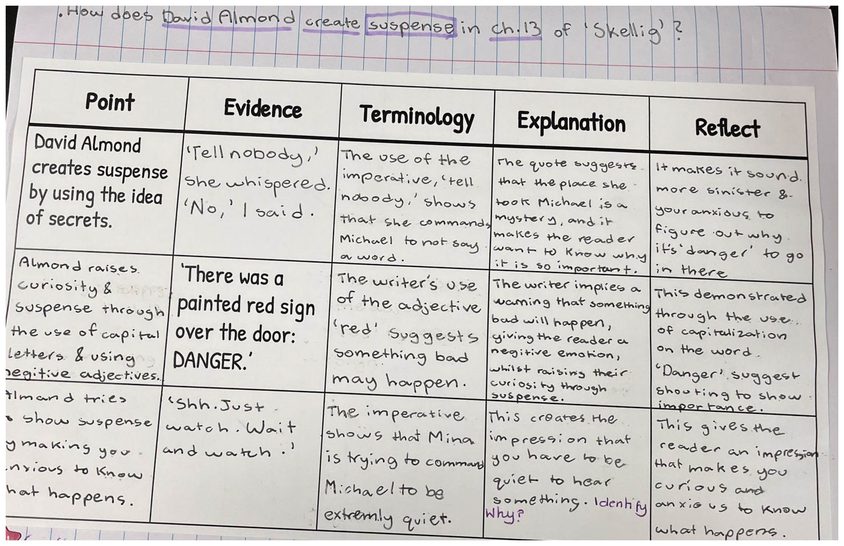 .How does David Almond create suspense in ch.13 of 'Skellig'?
Point
Evidence
Terminology
Explanation
Reflect
David Almond
creates suspense
by using the idea
of secrets.
'Tell nobody,'
she whispered.
'No,' I said.
The use of the
imperative, 'tell
nobody,' shows
that she commands
Michael to not say
a word.
The quote suggests
that the place she
took Michael is a
mystery, and it
makes the reader
want to know why
it is so important.
It makes it sound
more sinister &
your anxious to
figure out why
it's 'danger' to go
in there
Almond raises
curiosity &
suspense through
the use of capital
letters & using
negitive adjectives.
'There was a
painted red sign
over the door:
DANGER.'
The writer's use
of the adjective
'red' suggests
something bad
may happen.
The writer implies a
warning that something
bad will happen,
giving the reader a
negitive emotion,
whilst raising their
curiosity through
suspense.
This demonstrated
through the use
of capitalization
on the word.
'Danger'. suggest
shouting to show
importance.
Almond tries
to show suspense
by making you
anxious to know
what happens.
'Shh. Just
watch. Wait
and watch.'
The imperative
shows that Mina
is trying to command
Michael to be
extremly quiet.
This creates the
impression that
you have to be
quiet to hear
something. Identify
Why?
This gives the
reader an impression
that makes you
curious and
anxious to know
what happens.